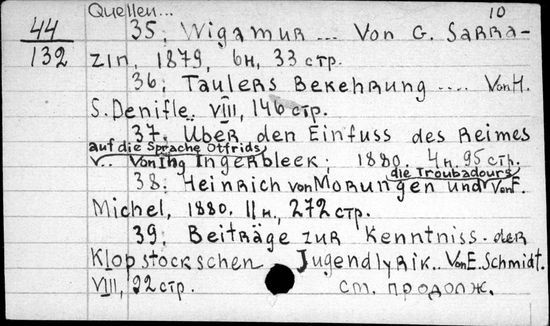 Quellen... 10
44 35; Wigamur ... Von G. Sarra-
132 zin, 1879, 6н, 33 стр.
36; Taulers Bekehrung .... Von H.
S. Denifle. VIII, 146 стр.
37; Über den Einfuss des Reimes
auf die Sprache Otfrids
v.. Von Ing Ingerbleek; 1880. 4н. 95 стр.
die Troubadours
38; Heinrich von Morungen und Von F.
Michel, 1880. II н., 272 стр.
39; Beiträge zur Kenntniss. der
Klopstockschen Jugendlyrik.. Von E. Schmidt.
VIII, 92 стр. см. продолж.